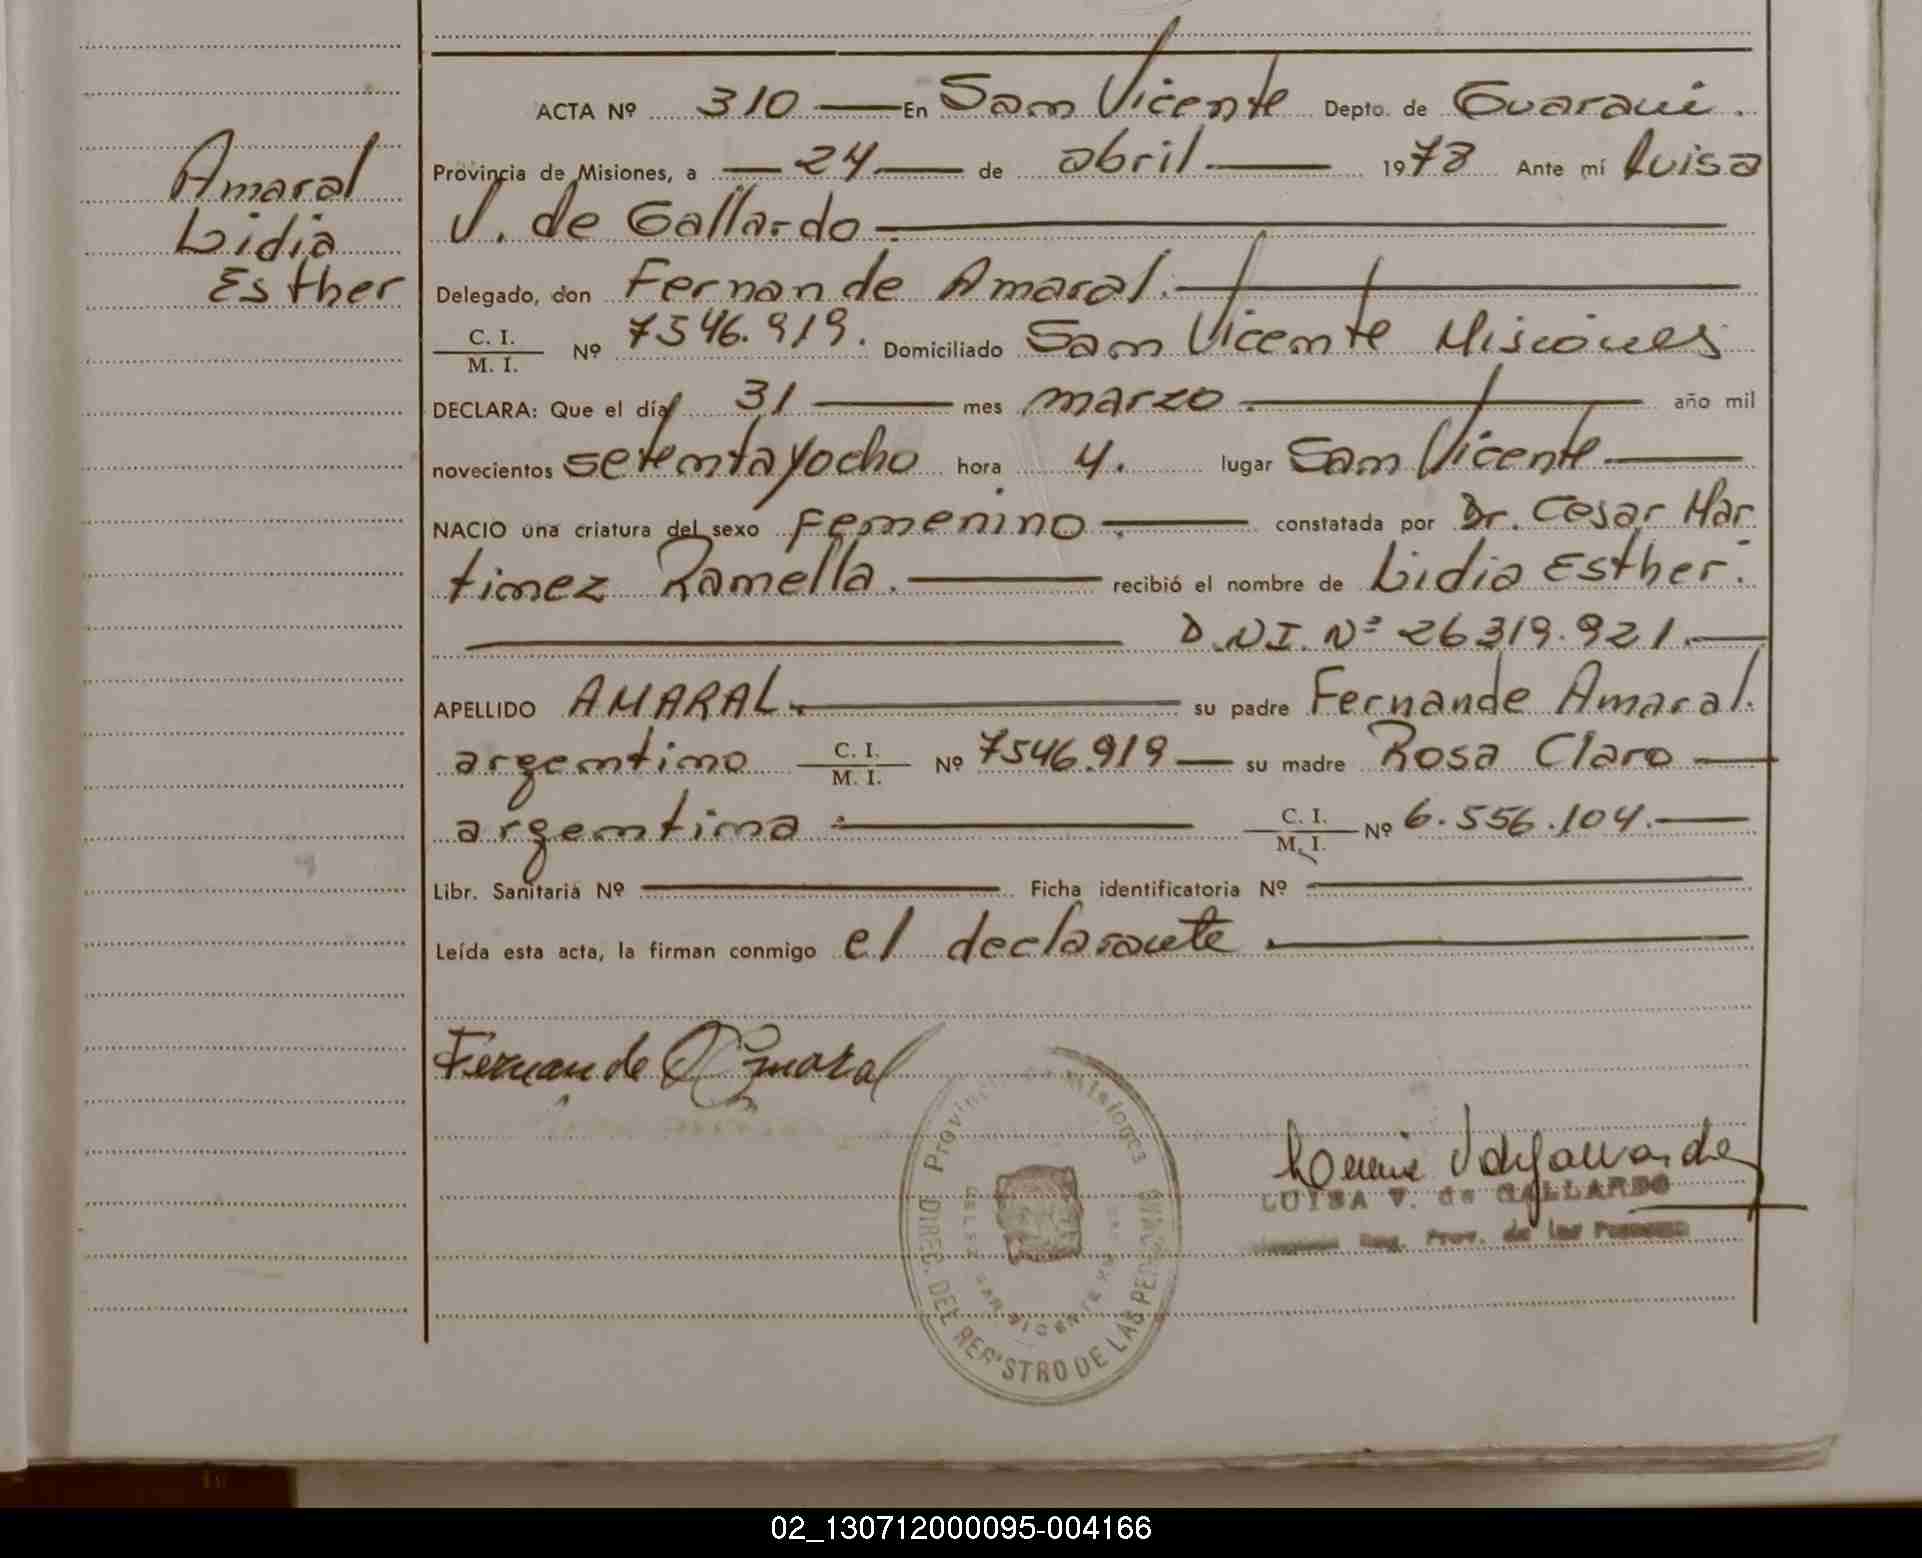 Amaral
Lidia
Esther
ACTA Nº 310 En San Vicente Depto. de Guarani.
Provincia de Misiones, a 24 de abril 1978 Ante mí Luisa
V. de Gallardo
Delegado, don Fernande Amaral.
C. I.
M. I. Nº 7546.919. Domiciliado San Vicente Misiones
DECLARA: Que el día 31 mes marzo año mil
novecientos setentayocho hora 4. lugar San Vicente
NACIO una criatura del sexo femenino constatada por Dr. Cesar Mar
tinez Ramella. recibió el nombre de Lidia Esther.
D.N.I. Nº 26319.921.
APELLIDO AMARAL su padre Fernande Amaral.
argentino C. I.
M. I. Nº 7546.919 su madre Rosa Claro
argentina C. I.
M. I. Nº 6.556.104.
Libr. Sanitaria Nº Ficha identificatoria Nº
Leída esta acta, la firman conmigo el declarante.
Fernande Amaral
Provincia de Misiones
DIREC. DEL REGISTRO DE LAS PERSONAS
SAN VICENTE
LUISA V. de GALLARDO
Reg. Prov. de las Personas
02_130712000095-004166